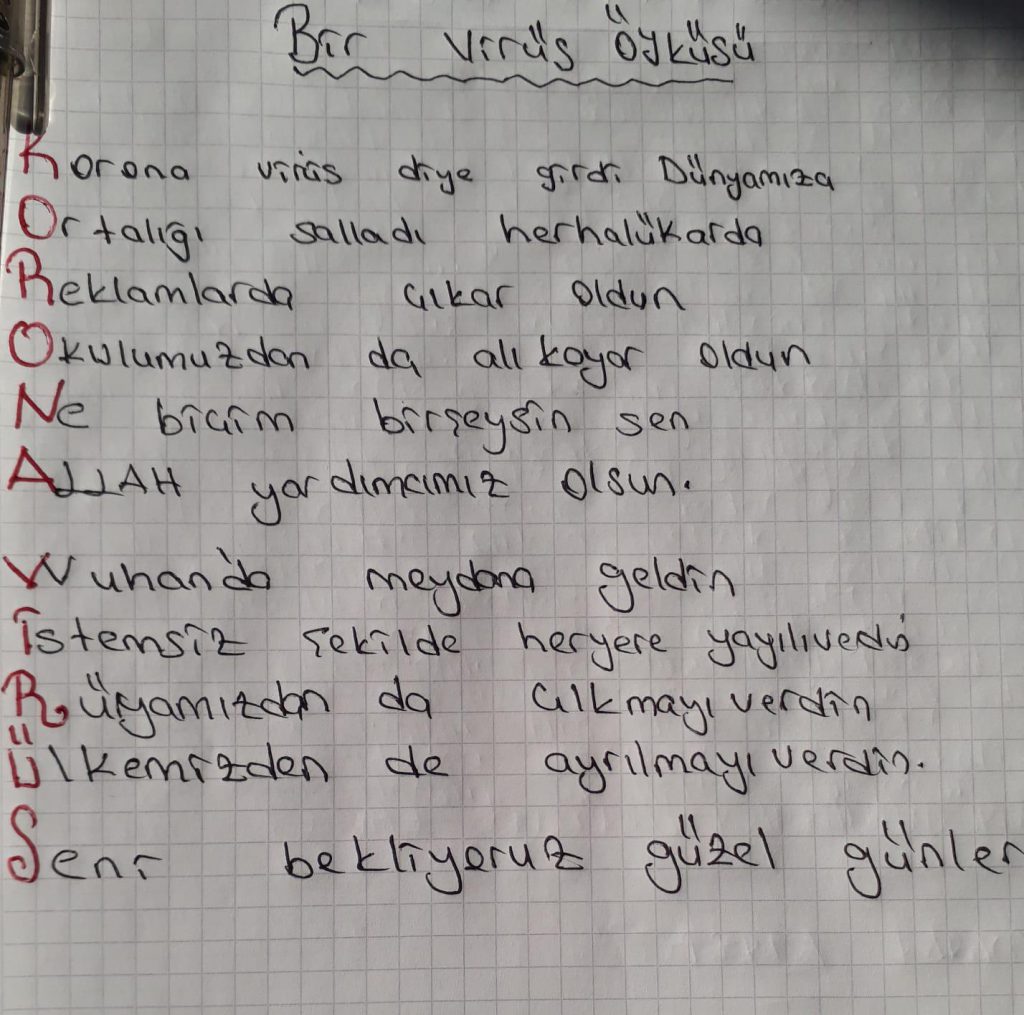 Bir virüs öyküsü
Korona virüs diye girdi Dünyamıza
Ortalığı salladı herhalükarda
Reklamlarda çıkar oldun
Okulumuzdan da alı koyar oldun
Ne biçim birşeysin sen
ALLAH yardımcımız olsun.
Wuhan'da meydana geldin
İstemsiz şekilde heryere yayılıverdi
Rüyamızdan da çıkmayı verdin
Ülkemizden de ayrılmayı verdin.
Seni bekliyoruz güzel günler